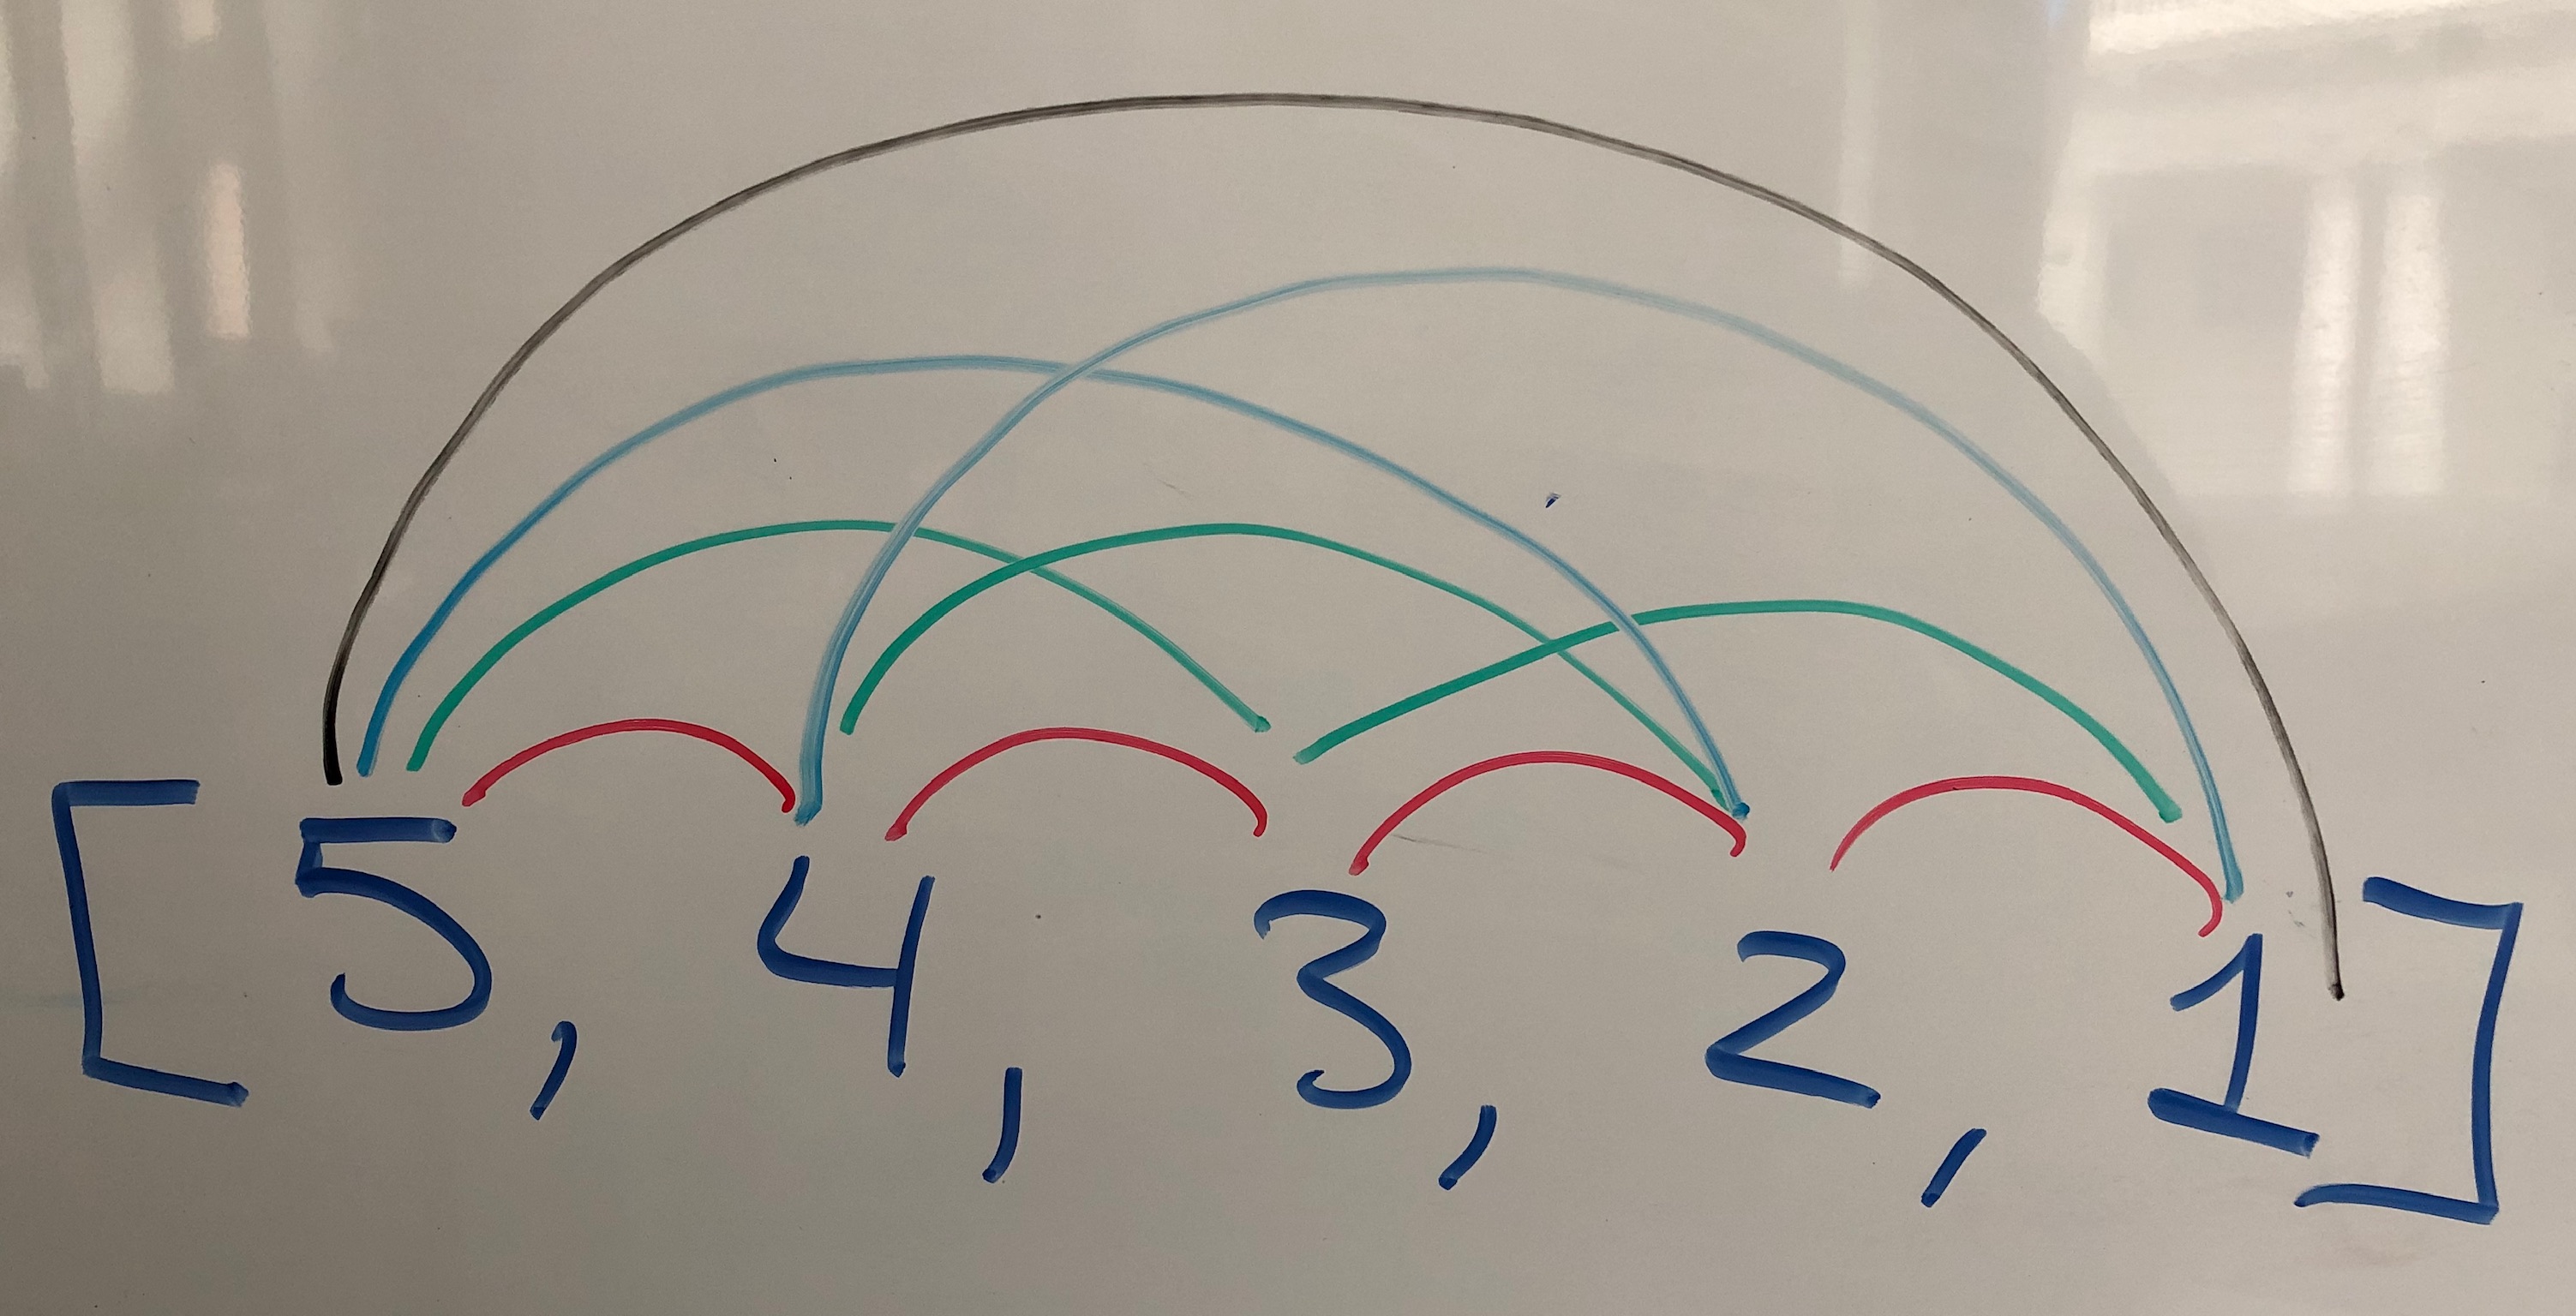 [5, 4, 3, 2, 1]